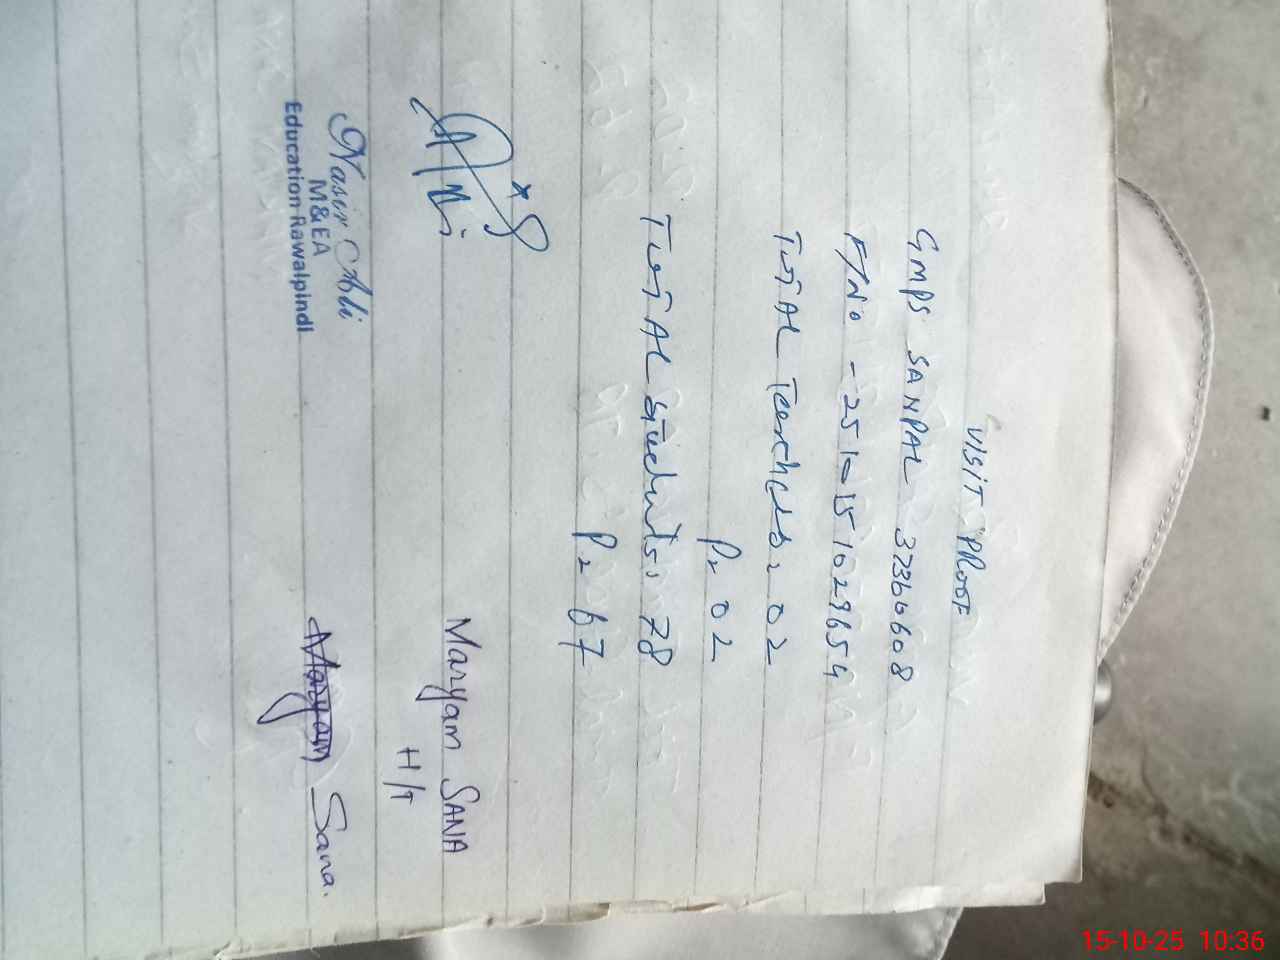 VISIT PROOF
GMPS SANPAL 37360608
F/No - 251015 1029654
TOTAL Teachers = 02
P = 02
TOTAL Students = 78
P = 67
Maryam SANA
H/T
Maryam Sana.
Nasir Ali
M&EA
Education Rawalpindi
15-10-25 10:36